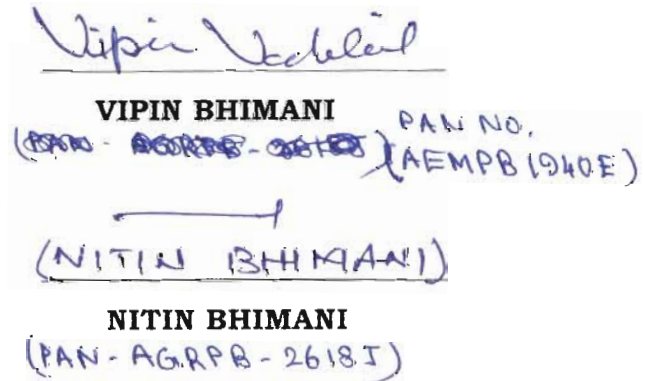 Vipin
VIPIN BHIMANI
PAN NO.
(AEMPB1940E)
(NITIN BHIMANI)
NITIN BHIMANI
(PAN - AGRPB - 2618J)